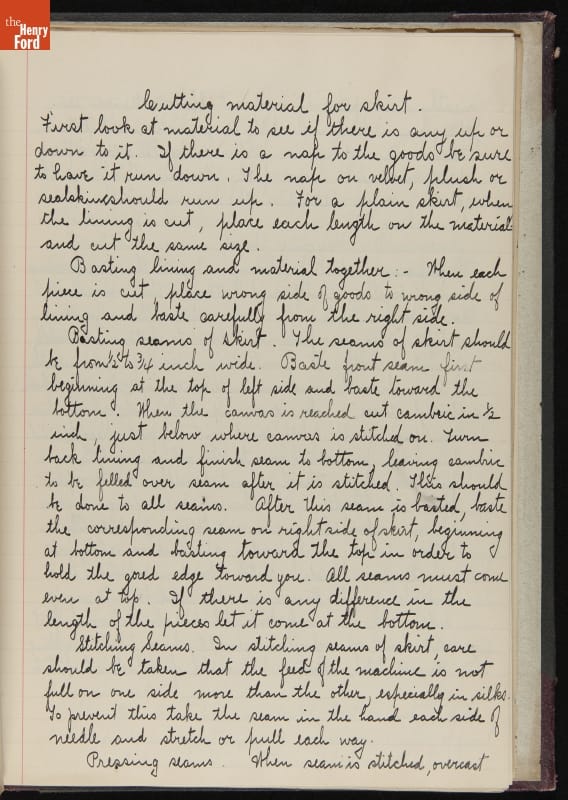 the
Henry
Ford
Cutting material for skirt.
First look at material to see if there is any up or
down to it. If there is a nap to the goods be sure
to have it run down. The nap on velvet, plush or
sealskin should run up. For a plain skirt, when
the lining is cut, place each length on the material
and cut the same size.
Basting lining and material together:- When each
piece is cut, place wrong side of goods to wrong side of
lining and baste carefully from the right side.
Basting seams of skirt. The seams of skirt should
be from 1/2 to 3/4 inch wide. Baste front seam first
beginning at the top of left side and baste toward the
bottom. When the canvas is reached cut cambric in 1/2
inch, just below where canvas is stitched on. Turn
back lining and finish seam to bottom, leaving cambric
to be felled over seam after it is stitched. This should
be done to all seams. After this seam is basted, baste
the corresponding seam on right side of skirt, beginning
at bottom and basting toward the top in order to
hold the gored edge toward you. All seams must come
even at top. If there is any difference in the
length of the pieces let it come at the bottom.
Stitching Seams. In stitching seams of skirt, care
should be taken that the feed of the machine is not
full on one side more than the other, especially in silks.
To prevent this take the seam in the hand each side of
needle and stretch or pull each way.
Pressing seams. When seam is stitched, overcast